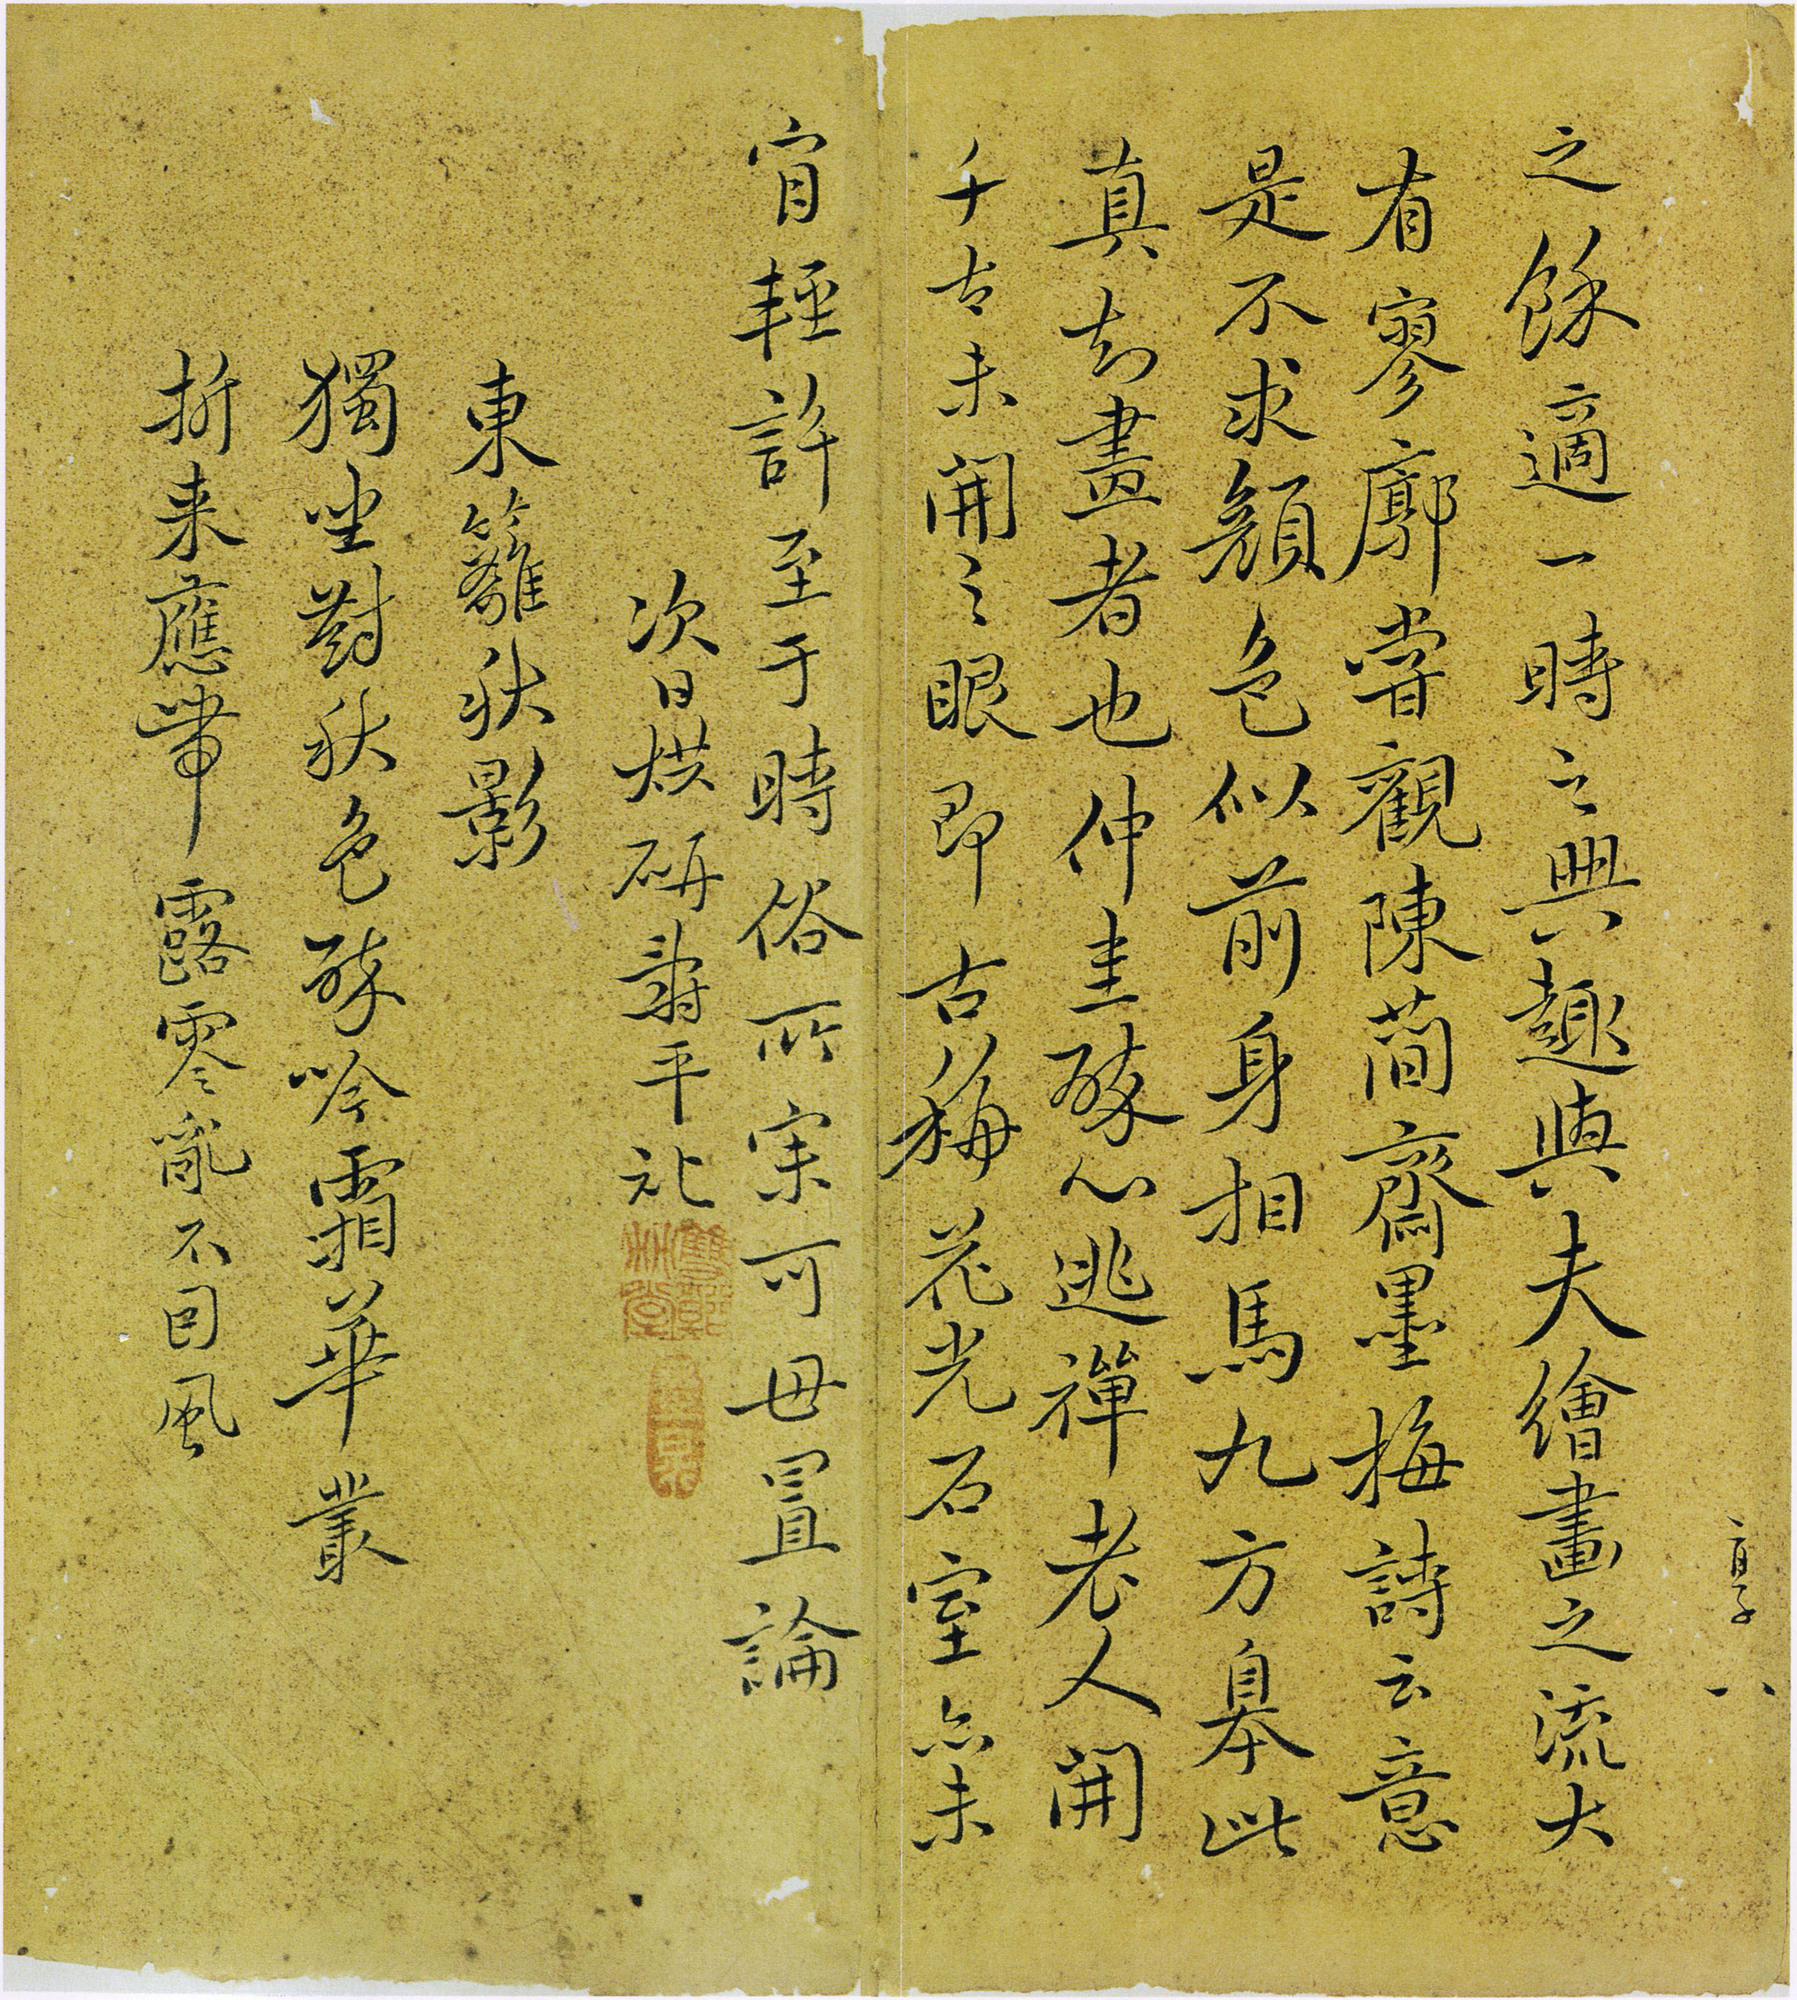 之餘適一時之興趣與夫繪畫之流大
有寥廓嘗觀陳蕑齋墨梅詩云意
是不求顏色似前身相馬九方臯此
真知畫者也仲圭醉心逃禪老人開
千古未開之眼即古梅花光石室亦未
肯輕許至于時俗所宗可毋置論
次日烘研壽平記
東籬秋影
獨坐對秋色醉吟霜華叢
折来應帶露零亂不因風
享 八